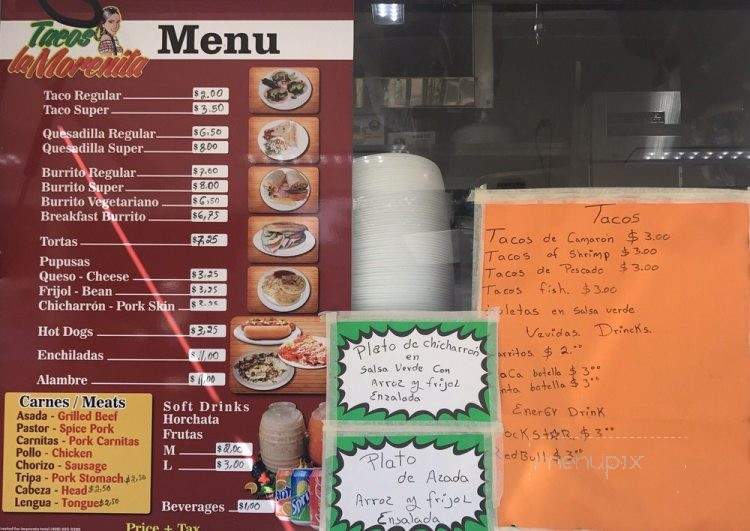 Tacos
la Morenita
Menu
Taco Regular $2.00
Taco Super $3.50
Quesadilla Regular $6.50
Quesadilla Super $8.00
Burrito Regular $7.00
Burrito Super $8.00
Burrito Vegetariano $6.50
Breakfast Burrito $6,75
Tortas $7,25
Pupusas
Queso - Cheese $3,25
Frijol - Bean $3,25
Chicharrón - Pork Skin
Hot Dogs $3,25
Enchiladas $11,00
Alambre $11,00
Carnes / Meats
Asada - Grilled Beef
Pastor - Spice Pork
Carnitas - Pork Carnitas
Pollo - Chicken
Chorizo - Sausage
Tripa - Pork Stomach $2,50
Cabeza - Head $2.50
Lengua - Tongue $2,50
Soft Drinks
Horchata
Frutas
M $2,00
L $3,00
Beverages $1,00
Price + Tax
Plato de chicharron
en
Salsa Verde con
Arroz y frijol
Enzalada
Plato
de Azada
Arroz y frijol
Ensalada
Tacos
Tacos de Camaron $3.00
Tacos of Shrimp $3.00
Tacos de Pescado $3.00
Tacos fish. $3.00
en salsa verde
Vevidas Drincks.
$2.00
botella $3.00
botella $3.00
Energy Drink
$3.00
RedBull $3.00
menupix